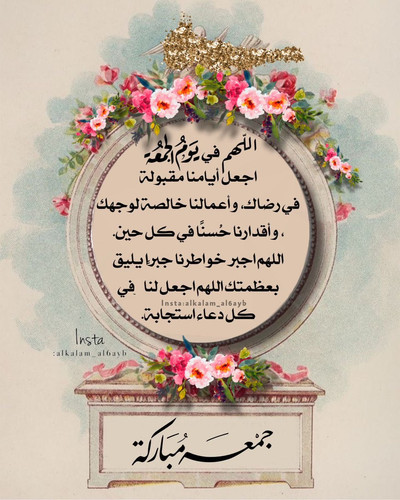 اللّهم في يَومُ الجمُعة
اجعل أيامنا مقبولة
في رضاك، وأعمالنا خالصة لوجهك
، وأقدارنا حُسنًا في كل حين.
اللهم اجبر خواطرنا جبرًا يليق
بعظمتك اللهم اجعل لنا في
Insta:alkalam_al6ayb
كل دعاء استجابة.
Insta
:alkalam_al6ayb
جمْعَـة مُبَاركَة